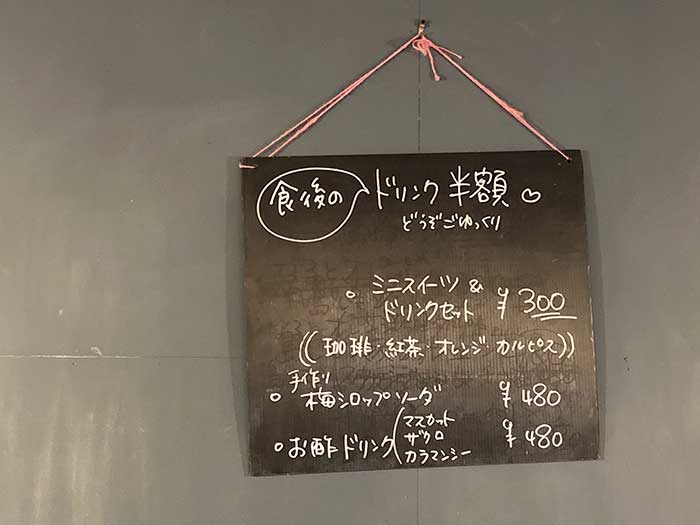 食後の ドリンク 半額
どうぞごゆっくり
ミニスイーツ &
ドリンクセット ¥300
((珈琲・紅茶・オレンジ・カルピス))
手作り
梅シロップソーダ ¥480
お酢ドリンク ¥480
マスカット
ザクロ
カラマンシー